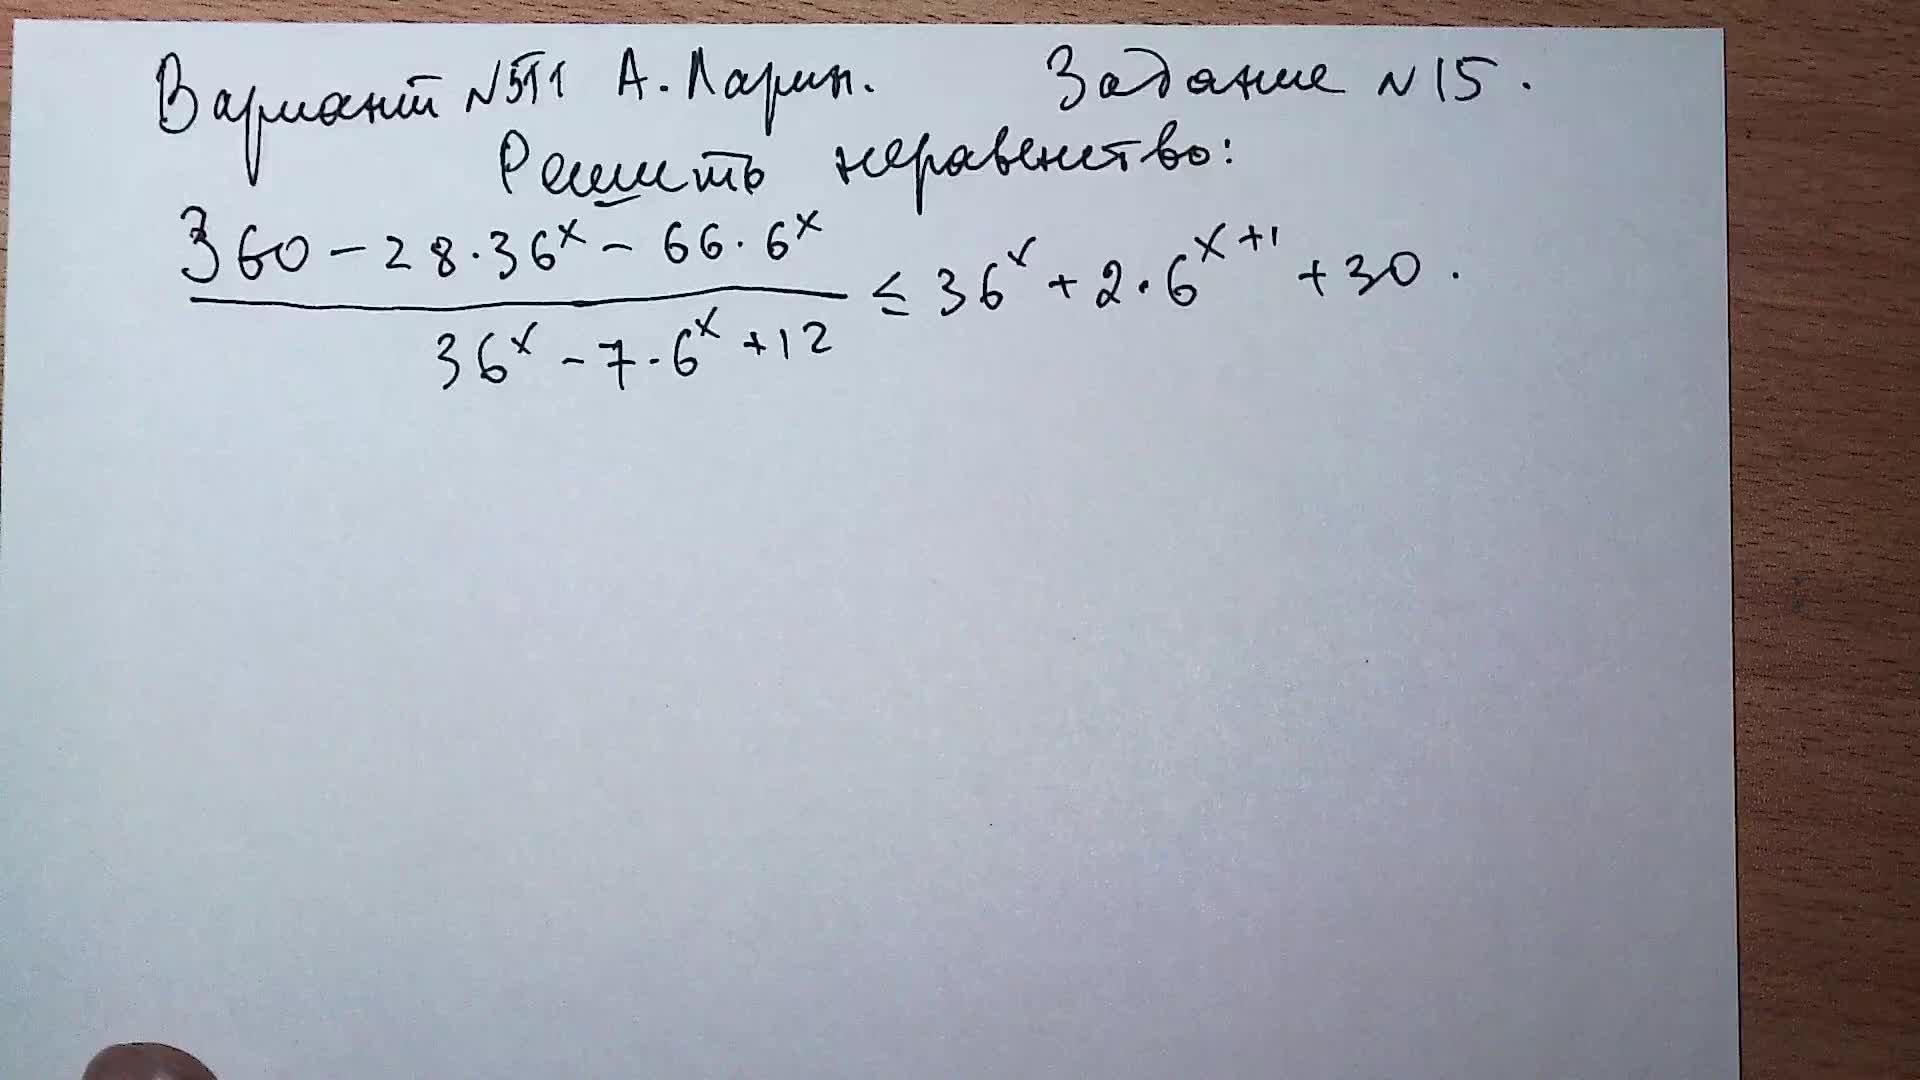 Вариант №511 А. Ларин. Задание №15.
Решить неравенство:
360 - 28·36^x - 66·6^x
36^x - 7·6^x + 12
≤ 36^x + 2·6^(x+1) + 30.